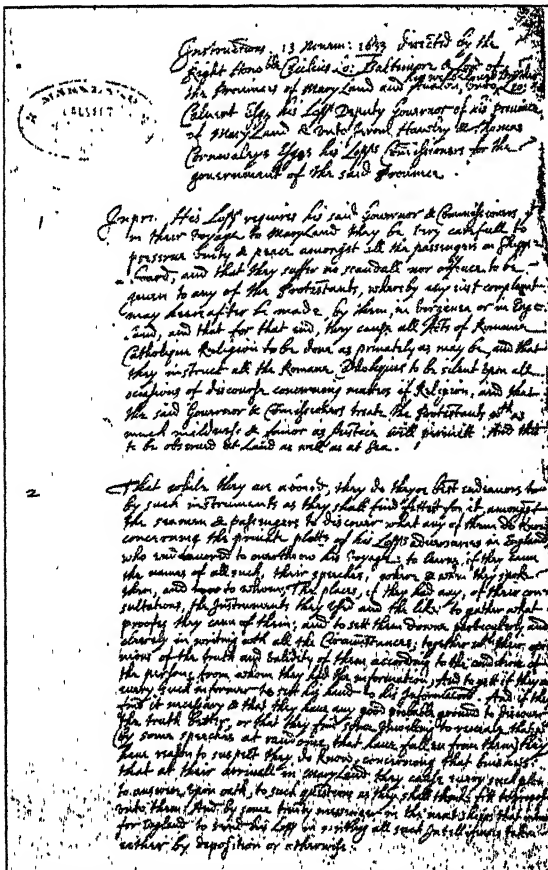 MARYLAND
CALVERT
Instructions 13 Novem: 1633 directed by the
Right Honoble Cecilius Lo: Baltimore & Lord of
the Provinces of Mary Land and Avalon unto his well beloved Brother Leo:
Calvert Esqr his Lopps Deputy Governor of his province
of Mary Land & unto Jerom Hawley & Thomas
Cornwaleys Esqrs his Lopps Comissioners for the
government of the said Province.
1
Inpri: His Lopp requires his said Governor & Commissioners
in their voyage to Mary Land they be very carefull to
preserve unity & peace amongst all the passengers on Shipp-
board, and that they suffer no scandall nor offence to be
given to any of the Protestants, whereby any just complaint
may heereafter be made, by them, in Virginea or in Eng-
land, and that for that end, they cause all Acts of Romane
Catholique Religion to be done as privately as may be, and that
they instruct all the Romane Catholiques to be silent upon all
occasions of discourse concerning matters of Religion, and that
the said Governor & Comissioners treate the Protestants wth as
much mildness & favor as Justice will permitt. And this
to be observed at Land as well as at Sea.
2
That while they are aboard, they do theyre best endeavors
by such instruments as they shall find fittest for it, amongst
the seamen & passengers to discover what any of them do know
concerning the private plotts of his Lopps adversaries in England
who endeavored to overthrow his voyage: to learne, if they cann
the names of all such, their speeches, where & when they spoke
them, and to whom; The places, if they had any, of their con-
sultations, the Instruments they used and the like: to gather what
proofes they cann of them; and to sett them downe particulerly and
cleerely in writing with all the Circumstances; together wth their opi-
nions of the truth and validity of them according to the condition of
the persons from whom they had the information; And to gett if they can
every such informer to sett his hand to his Informacon. And if they
find it necessary & that they have any good probable ground to discover
the truth better, or that they find some unwilling to reveale that
(by some speeches at randome, that have fallen from them) they
have reason to suspect they do know concerning that buisness:
that at their arrivall in Mary Land they cause every such
to answer upon oath, to such questions as they shall thinke fitt to
unto them: And by some trusty messenger in the next shipps that
for England to send his Lopp in writing all such Intelligences taken
either by deposition or otherwise.